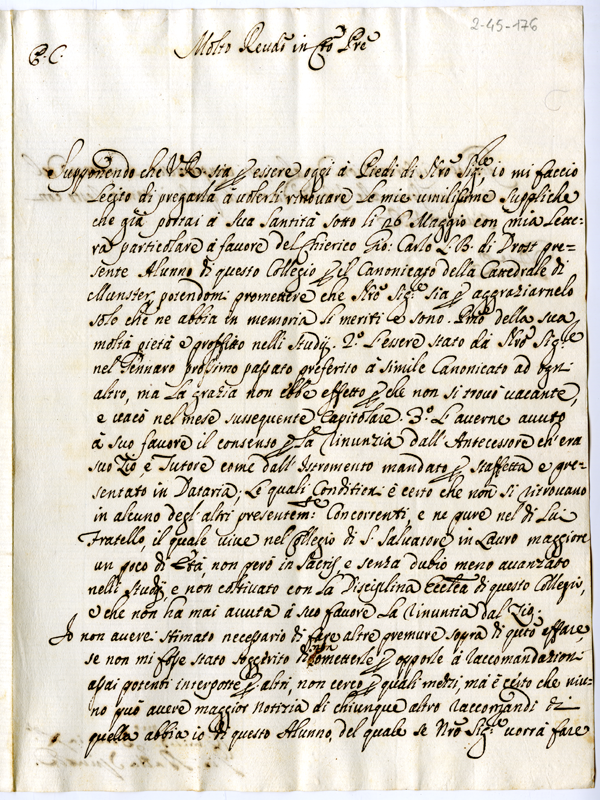 2-45-176
P. C.
Molto Revdo in Cto Pre
Supponendo che V. R. sia per essere oggi à Piedi di Nro Sige, io mi faccio
Lecito di pregarla à volerli rinovare Le mie umilissime suppliche
che già portai à Sua Santità sotto li 26 Maggio con mia Lette-
ra particolare à favore del Chierico Gio: Carlo L. B. di Drost pre-
sente Alunno di questo Collegio per il Canonicato della Cattedrale di
Munster, potendomi promettere che Nro Sige sia per aggraziarnelo
solo che ne abbia in memoria li meriti e sono. Pmo della sua
molta pietà e profitto nelli Studij. 2.º L'essere stato da Nro Sige
nel Gennaro prossimo passato preferito à simile Canonicato ad ogn'
altro, ma La grazia non ebbe effetto per che non si trovò vacante,
e vacò nel mese susseguente Capitolare. 3.º L'averne avuto
à suo favore il consenso per La rinunzia dall'Antecessore ch'era
suo Zio e Tutore come dall'Istromento mandato per staffetta e pre-
sentato in Dataria; Le quali Condizioni è certo che non si ritrovano
in alcuno degl'altri presentemte Concorrenti e ne pure nel di Lui
Fratello, il quale vive nel Collegio di S. Salvatore in Lauro maggiore
un poco di Età, non però in Sacris, e senza dubio meno avanzato
nelli studij e non coltivato con la Disciplina Ecctca di questo Collegio,
e che non ha mai avuta à suo favore La rinuntia dal Zio.
Io non averei stimato necessario di fare altre premure sopra di qto affare
se non mi fosse stato suggerito di non ometterle per opporle à raccomandazioni
assai potenti interposte per altri, non cerco per quali mezzi, ma è certo che niu-
no può avere maggior notizia di chiunque altro raccomandi di
quella abbia io di questo Alunno, del quale se Nro Sige vorrà fare